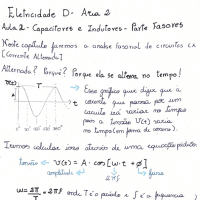 Eletricidade D - Area 2
Aula 2 - Capacitores e Indutores - Parte Fasores
Neste capítulo faremos a análise fasorial de circuitos CA
[Corrente Alternada]
Alternada? Porquê? Porque ela se alterna no tempo!
T
Esse gráfico quer dizer que a
corrente que passa por um
circuito irá variar no tempo
pois a tensão V(t) varia
no tempo (em forma de cosseno).
0° 90° 180° 360°
Iremos calcular isso através de uma equação
tensão V(t) = A · cos [ω·t + φ]
amplitude 2πf fase
ω = 2π/T = 2πf onde T é o período e f é a frequência